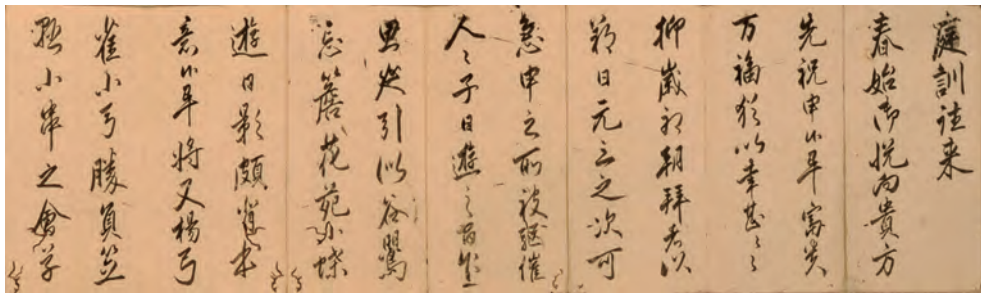 庭訓往来
春始御悦向貴方
先祝申候畢富貴
万福猶以幸甚々々
抑歳初朝拝者以
朔日元三之次可
急申之所被駈催
人々子日遊之間乍
思延引似谷鶯
忘簷花苑小蝶
遊日影頗背本
意候畢将又楊弓
雀小弓勝負笠
懸小串之會草